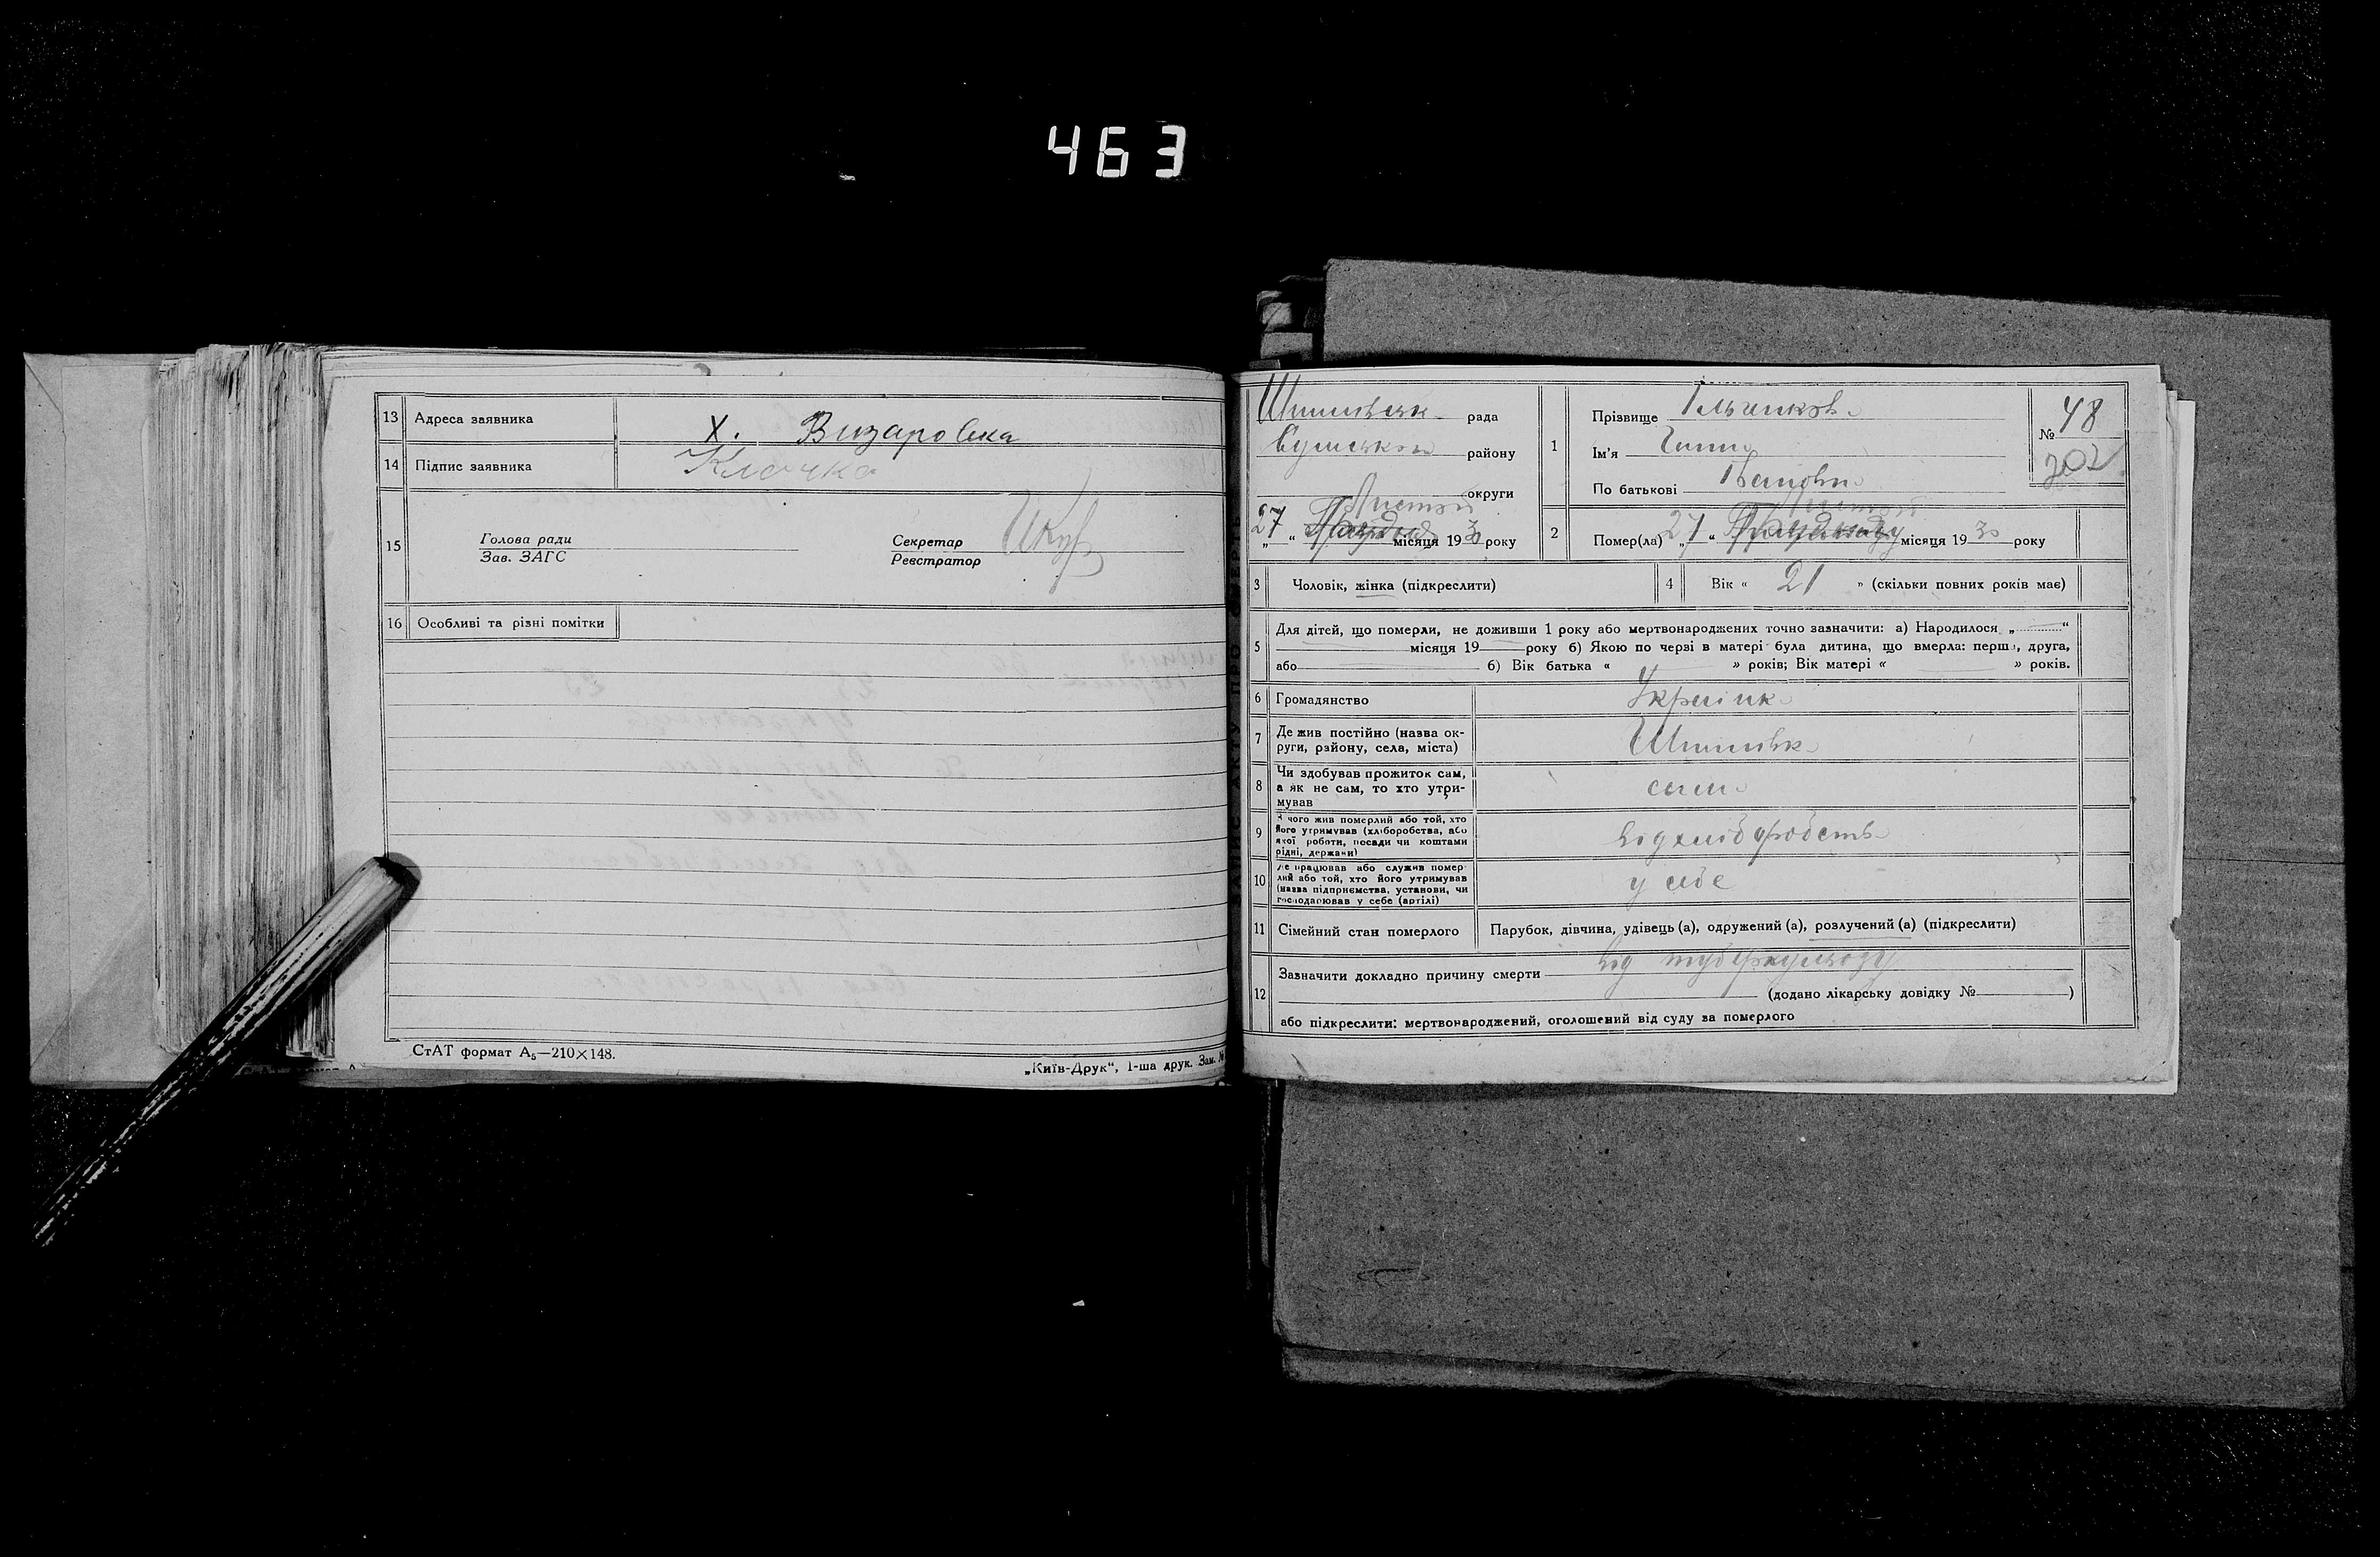 463
13 Адреса заявника х. Визаровка
14 Підпис заявника Клочко
15 Голова ради
Зав. ЗАГС
Секретар
Реєстратор
16 Особливі та різні помітки
СтАТ формат А5—210×148.
„Київ-Друк“, 1-ша друк. Зам. №
рада
району
округи
27 „ “ місяця 1930 року
1 Прізвище
Ім'я
По батькові
№ 48
202
2 Помер(ла) „27“ місяця 1930 року
3 Чоловік, жінка (підкреслити)
4 Вік « 21 » (скільки повних років має)
5 Для дітей, що померли, не доживши 1 року або мертвонароджених точно зазначити: а) Народилося „ “
місяця 19 року б) Якою по черзі в матері була дитина, що вмерла: перша, друга,
або б) Вік батька « » років; Вік матері « » років.
6 Громадянство
7 Де жив постійно (назва ок-
руги, району, села, міста)
8 Чи здобував прожиток сам,
а як не сам, то хто утри-
мував
сама
9 З чого жив померлий або той, хто
його утримував (хліборобства, або
якої роботи, посади чи коштами
рідні, держави)
від хліборобства
10 Де працював або служив помер-
лий або той, хто його утримував
(назва підприємства, установи, чи
господарював у себе (артілі)
у себе
11 Сімейний стан померлого Парубок, дівчина, удівець (а), одружений (а), розлучений (а) (підкреслити)
12 Зазначити докладно причину смерти від туберкульозу
(додано лікарську довідку № )
або підкреслити: мертвонароджений, оголошений від суду за померлого